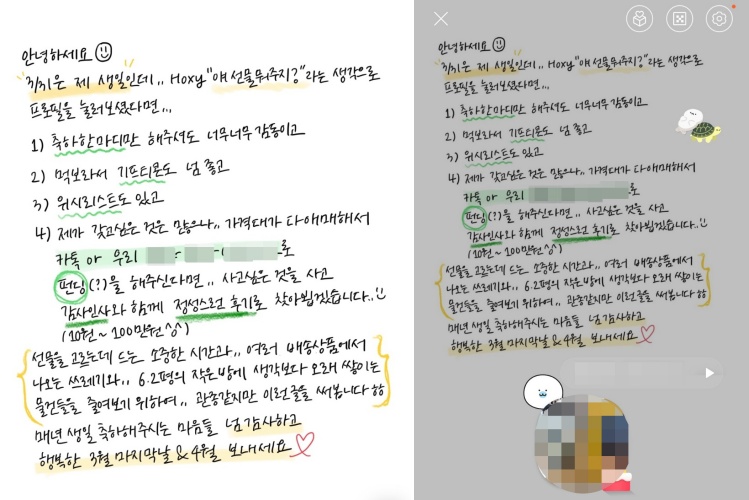 안녕하세요
3/31은 제 생일인데,, Hoxy "얘 선물뭐주지?"라는 생각으로
프로필을 눌러보셨다면,,,
1) 축하한마디만 해주셔도 너무너무 감동이고
2) 먹보라서 기프티콘도 넘 좋고
3) 위시리스트도 있고
4) 제가 갖고싶은 것은 많으나,, 가격대가 다 애매해서
카톡 or 우리 로
펀딩(?)을 해주신다면,, 사고싶은 것을 사고
감사인사와 함께 정성스런 후기로 찾아뵙겠습니다..
(10원~100만원 ^^)
선물을 고르는데 드는 소중한 시간과,, 여러 배송상품에서
나오는 쓰레기와,, 6.2평의 작은방에 생각보다 오래 쌓이는
물건들을 줄여보기 위하여,, 관종같지만 이런글을 써봅니다 핳
매년 생일 축하해주시는 마음들 넘 감사하고
행복한 3월 마지막날 & 4월 보내세요
안녕하세요
3/31은 제 생일인데,, Hoxy "얘 선물뭐주지?"라는 생각으로
프로필을 눌러보셨다면,,,
1) 축하한마디만 해주셔도 너무너무 감동이고
2) 먹보라서 기프티콘도 넘 좋고
3) 위시리스트도 있고
4) 제가 갖고싶은 것은 많으나,, 가격대가 다 애매해서
카톡 or 우리 로
펀딩(?)을 해주신다면,, 사고싶은 것을 사고
감사인사와 함께 정성스런 후기로 찾아뵙겠습니다..
(10원~100만원 ^^)
선물을 고르는데 드는 소중한 시간과,, 여러 배송상품에서
나오는 쓰레기와,, 6.2평의 작은방에 생각보다 오래 쌓이는
물건들을 줄여보기 위하여,, 관종같지만 이런글을 써봅니다 핳
매년 생일 축하해주시는 마음들 넘 감사하고
행복한 3월 마지막날 & 4월 보내세요